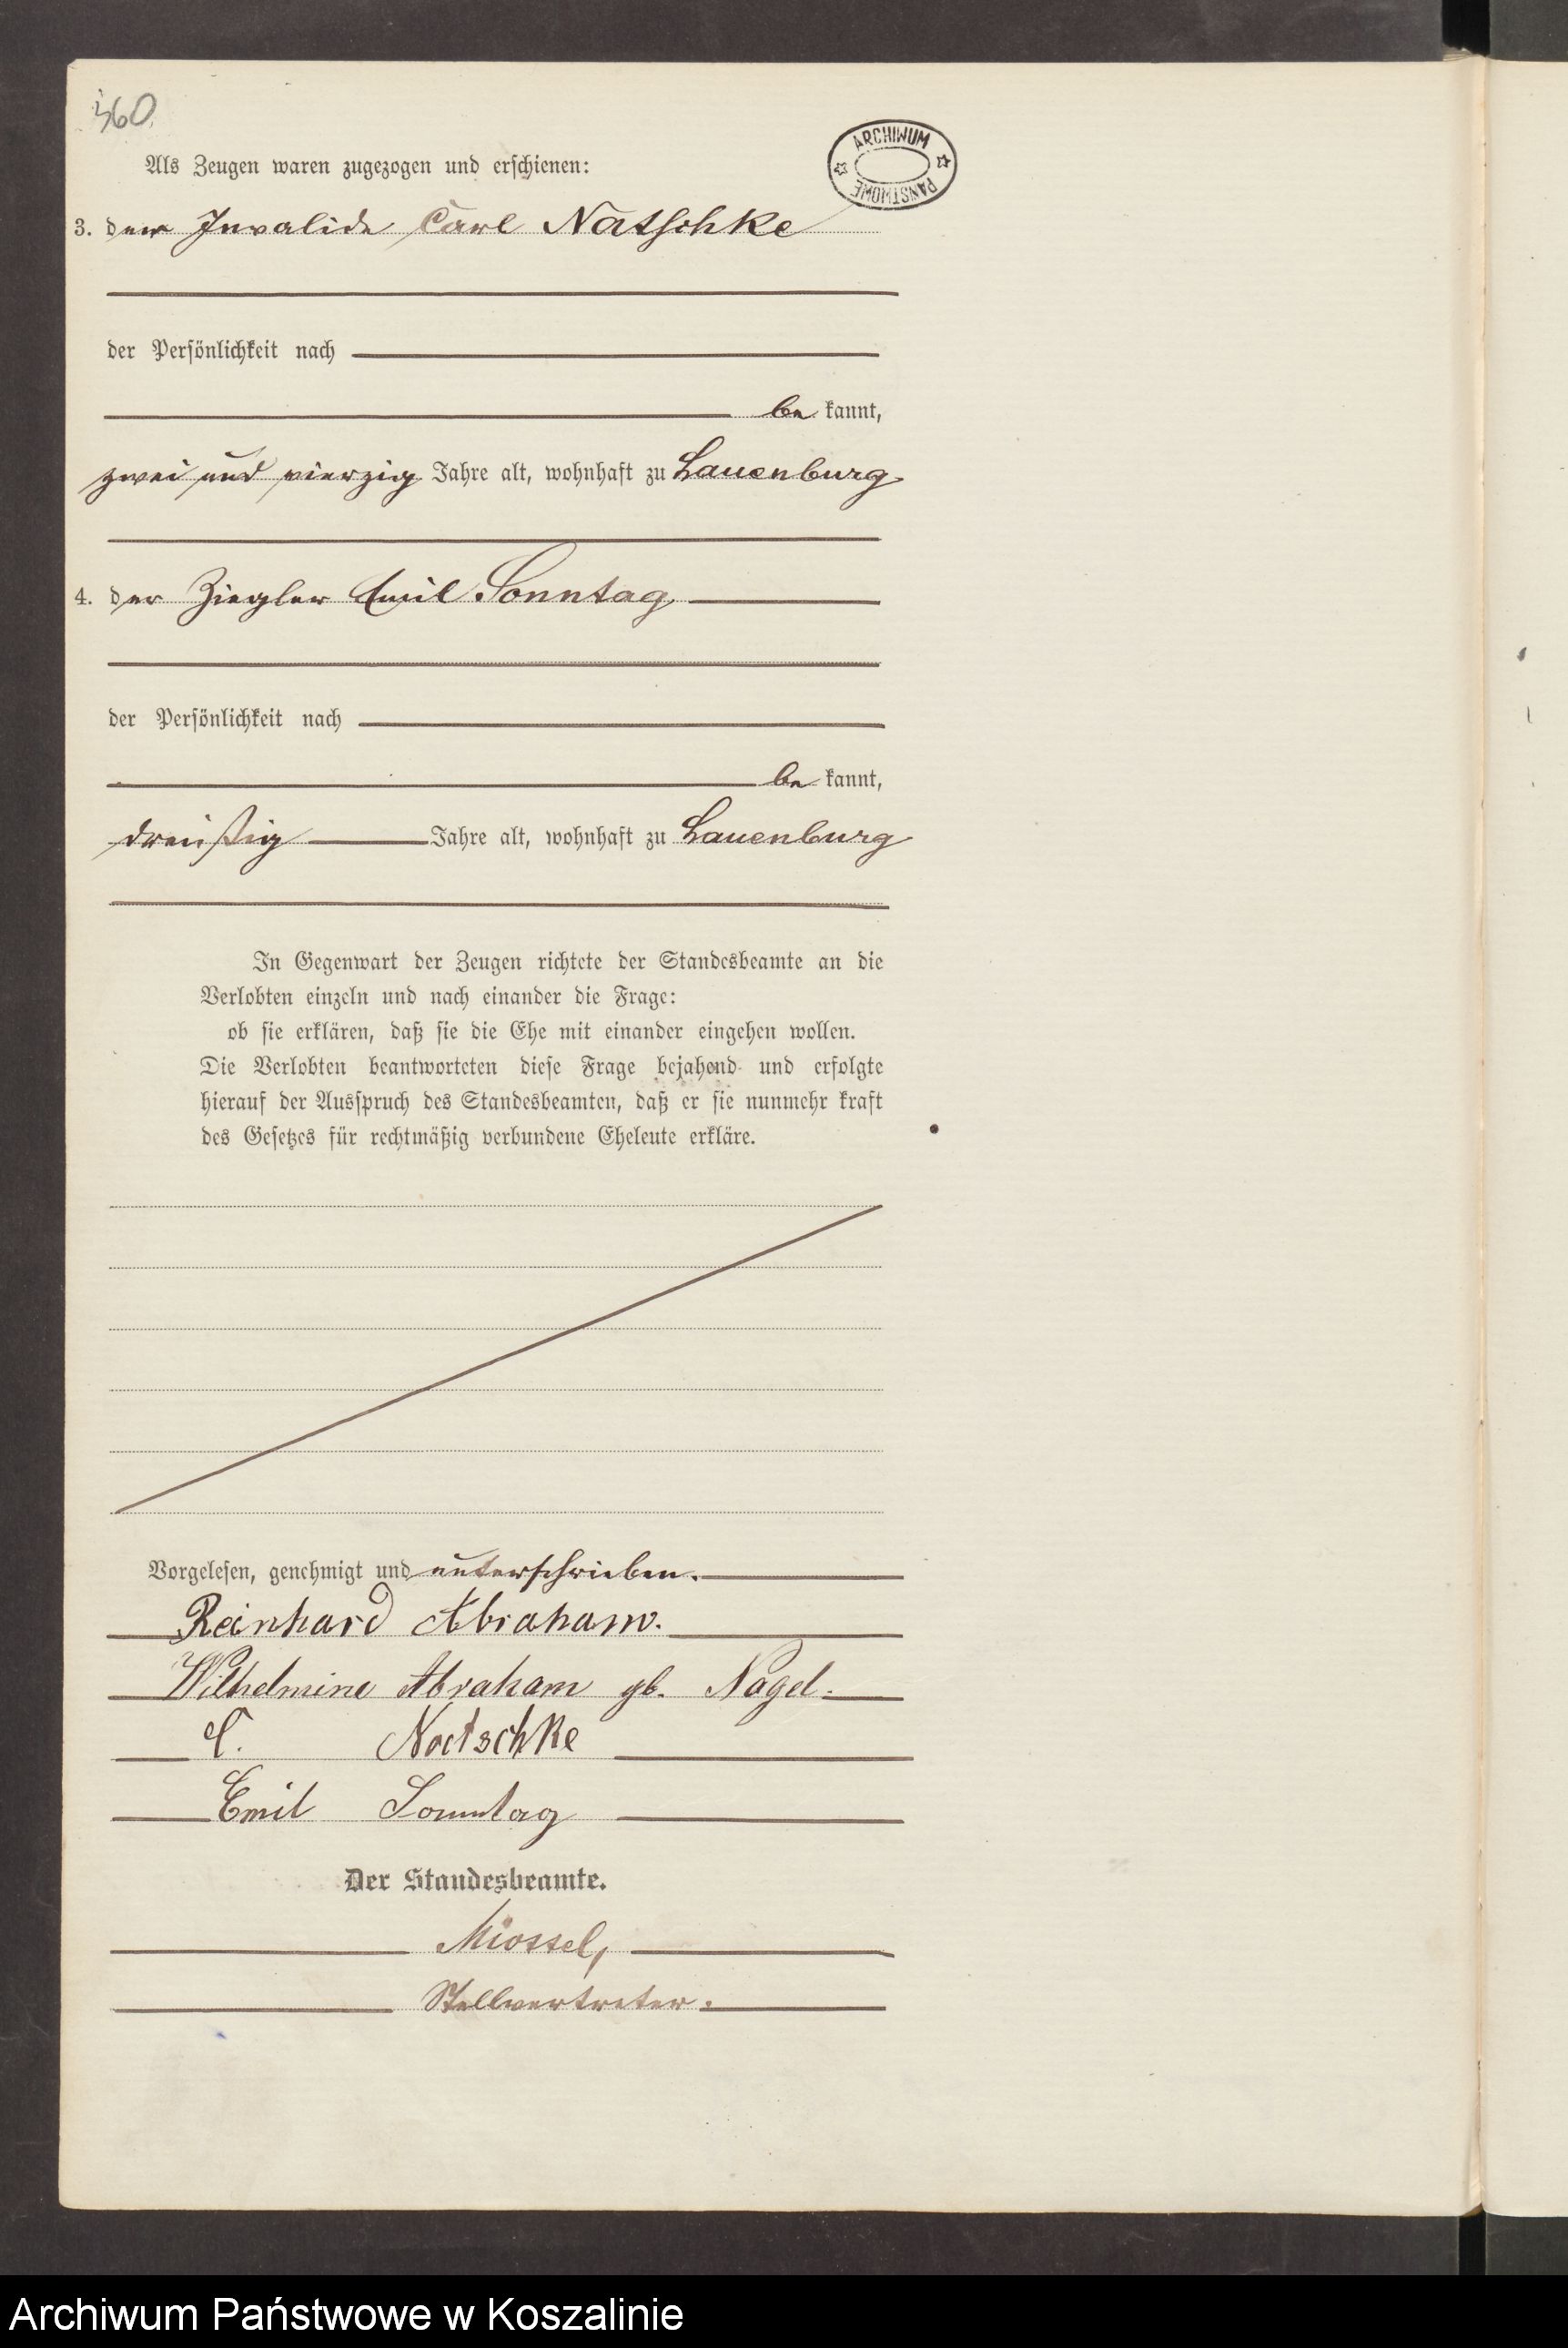 360
ARCHIWUM
PAŃSTWOWE
Als Zeugen waren zugezogen und erschienen:
3. der Invalide Carl Natschke
der Persönlichkeit nach
be kannt,
zwei und vierzig Jahre alt, wohnhaft zu Lauenburg
4. der Ziegler Emil Sonntag
der Persönlichkeit nach
be kannt,
dreißig Jahre alt, wohnhaft zu Lauenburg
In Gegenwart der Zeugen richtete der Standesbeamte an die
Verlobten einzeln und nach einander die Frage:
ob sie erklären, daß sie die Ehe mit einander eingehen wollen.
Die Verlobten beantworteten diese Frage bejahend und erfolgte
hierauf der Ausspruch des Standesbeamten, daß er sie nunmehr kraft
des Gesetzes für rechtmäßig verbundene Eheleute erkläre.
Vorgelesen, genehmigt und unterschrieben.
Reinhard Abraham.
Wilhelmine Abraham gb. Nagel.
C. Natschke
Emil Sonntag
Der Standesbeamte.
Miossel,
Stellvertreter.
Archiwum Państwowe w Koszalinie